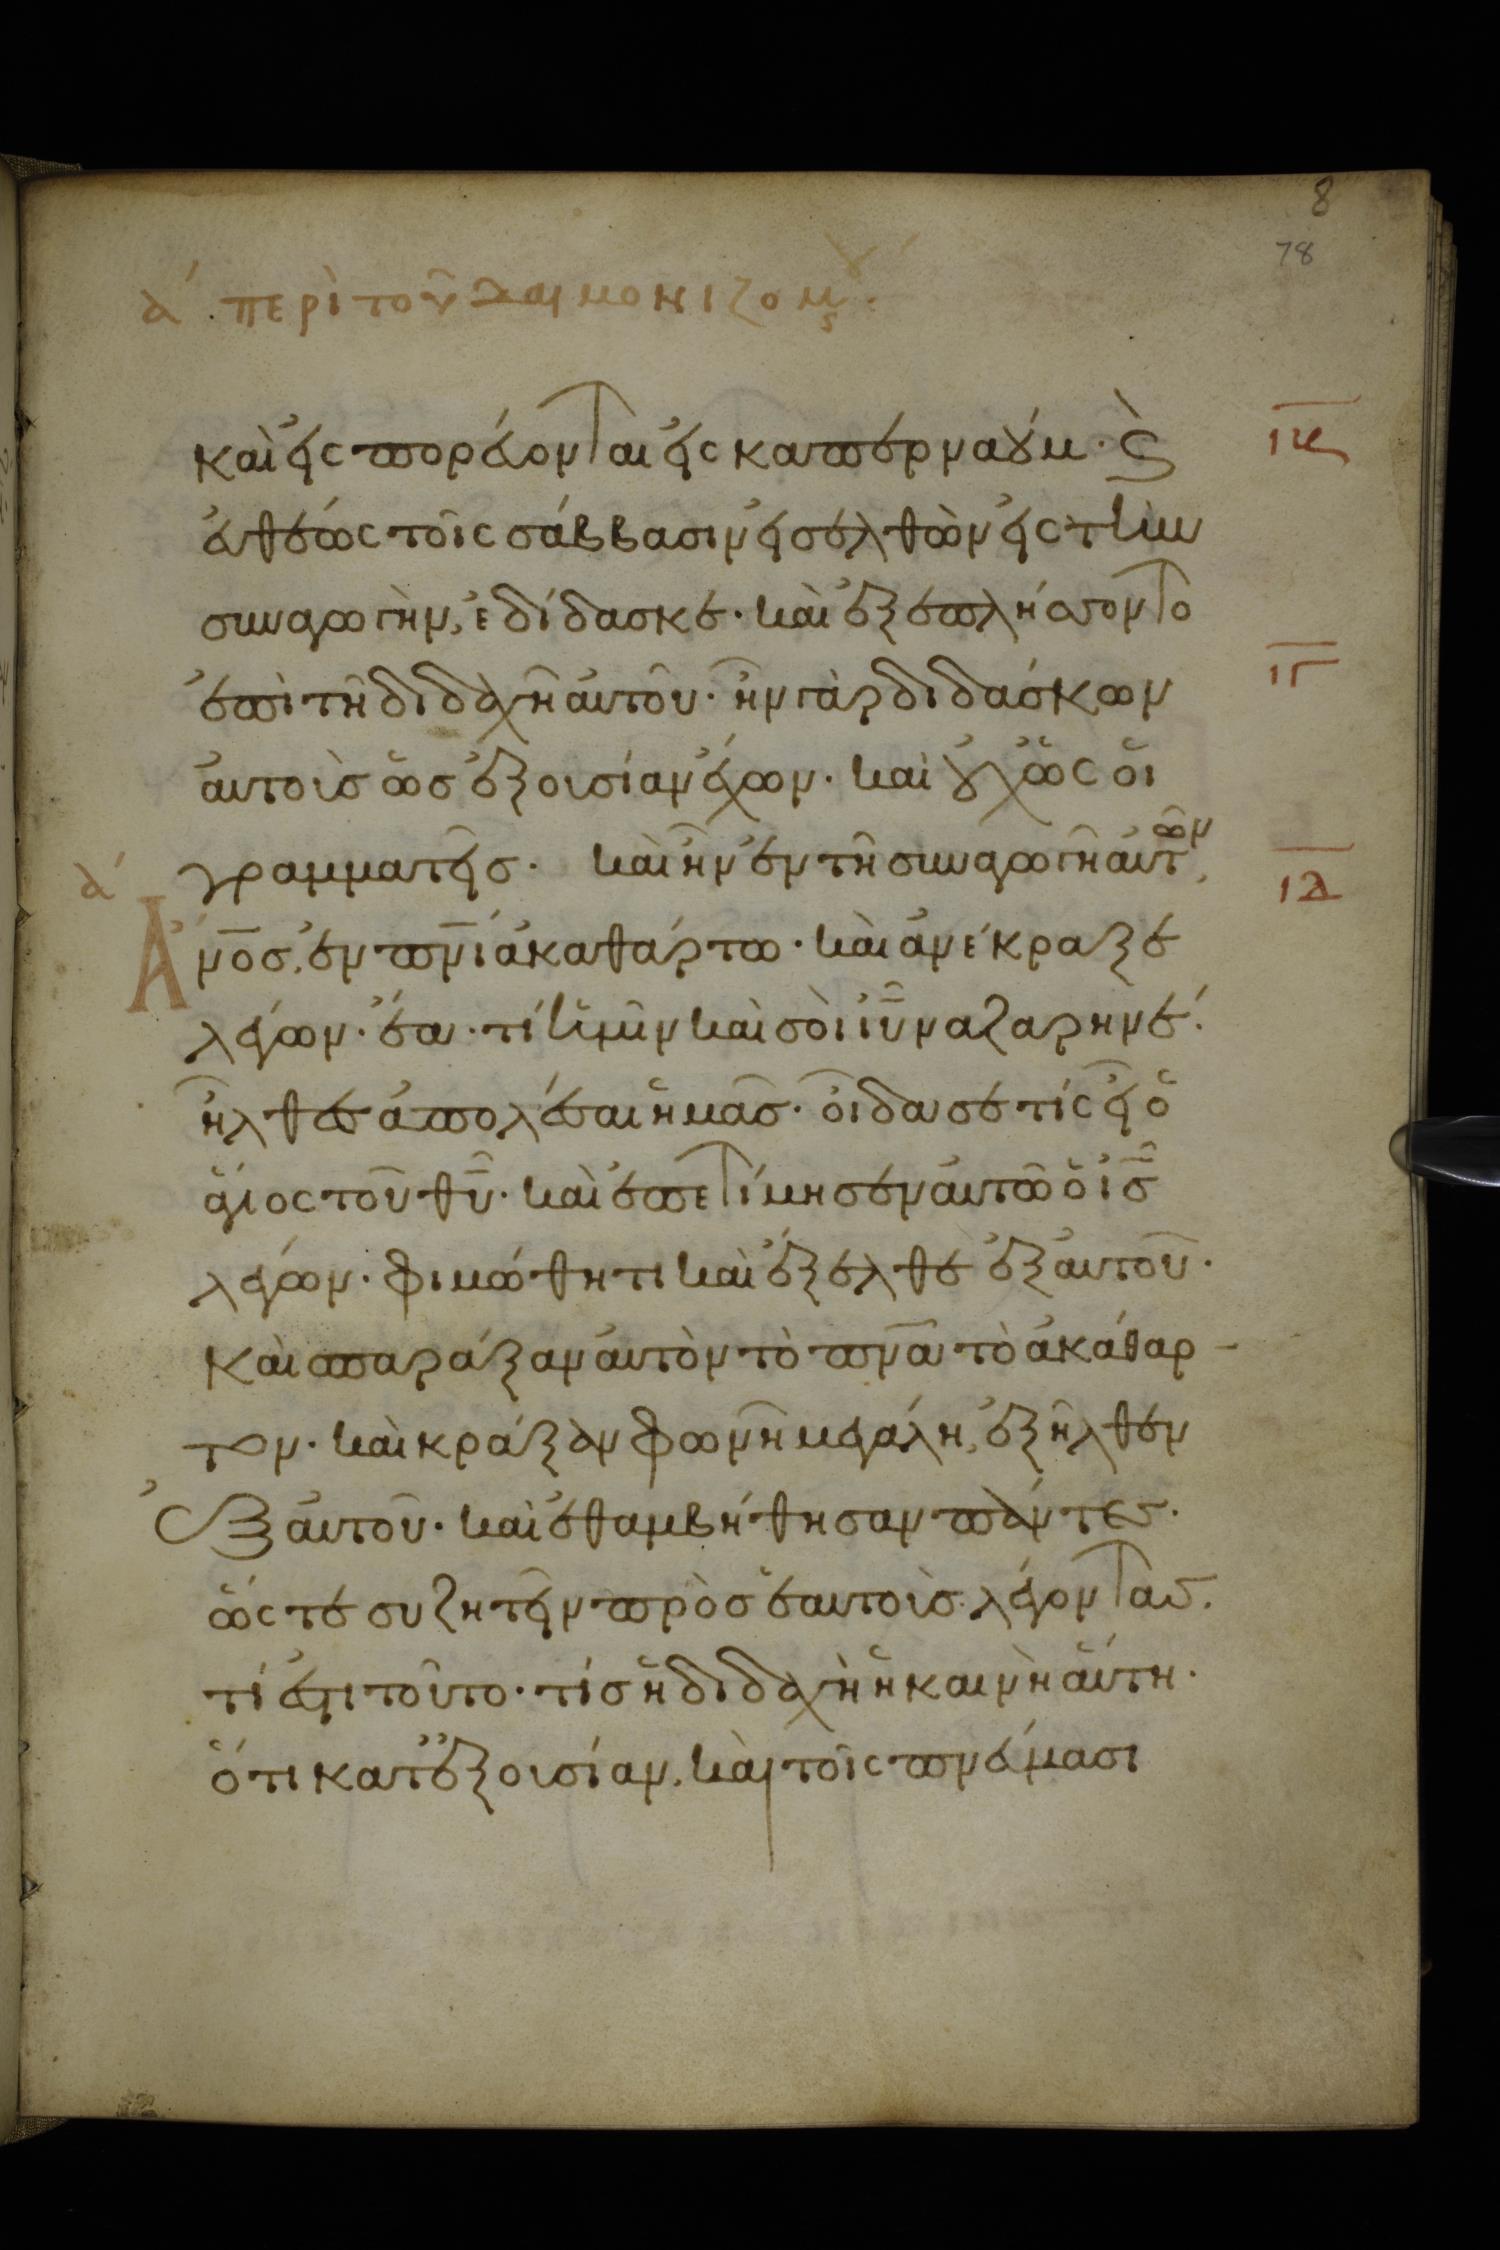 8
78
α΄. περὶ τοῦ δαιμονιζομ
καὶ εἰς πορεύονται εἰς καπερναούμ· καὶ
εὐθέως τοῖς σάββασιν εἰσελθὼν εἰς τὴν
συναγωγὴν, ἐδίδασκε· καὶ ἐξεπλήσσοντο
ἐπὶ τῇ διδαχῇ αὐτοῦ· ἦν γὰρ διδάσκων
αὐτοὺσ ὡσ ἐξουσίαν ἔχων· καὶ οὐχ ὡς οἱ
γραμματεῖσ· καὶ ἦν ἐν τῇ συναγωγῇ αὐτῶν
α΄
ΙΒ
ΙΓ
ΙΔ
Ἄνο̅σ, ἐν πν̅ι ἀκαθάρτω· καὶ ἀνέκραξε
λέγων· ἔα· τί ἡμῖν καὶ σοὶ ἰυ̅ ναζαρηνέ·
ἦλθες ἀπολέσαι ἡμᾶσ· οἶδα σέ τίς εἶ ὁ
ἅγιος τοῦ θυ̅· καὶ ἐπετίμησεν αὐτῶ ὁ ἰσ̅
λέγων· φιμώθητι καὶ ἔξελθε ἐξ αὐτοῦ·
καὶ σπαράξαν αὐτὸν τὸ πν̅α τὸ ἀκάθαρ-
τον· καὶ κράξαν φωνῇ μεγάλη, ἐξῆλθεν
ἐξ αὐτοῦ· καὶ ἐθαμβήθησαν πάντες·
ὥςτε συζητεῖν πρὸσ ἑαυτοὺσ λέγοντασ.
τί ἐστι τοῦτο· τίσ ἡ διδαχὴ ἡ καινὴ αὕτη·
ὅτι κατ' ἐξουσίαν, καὶ τοῖς πνεύμασι